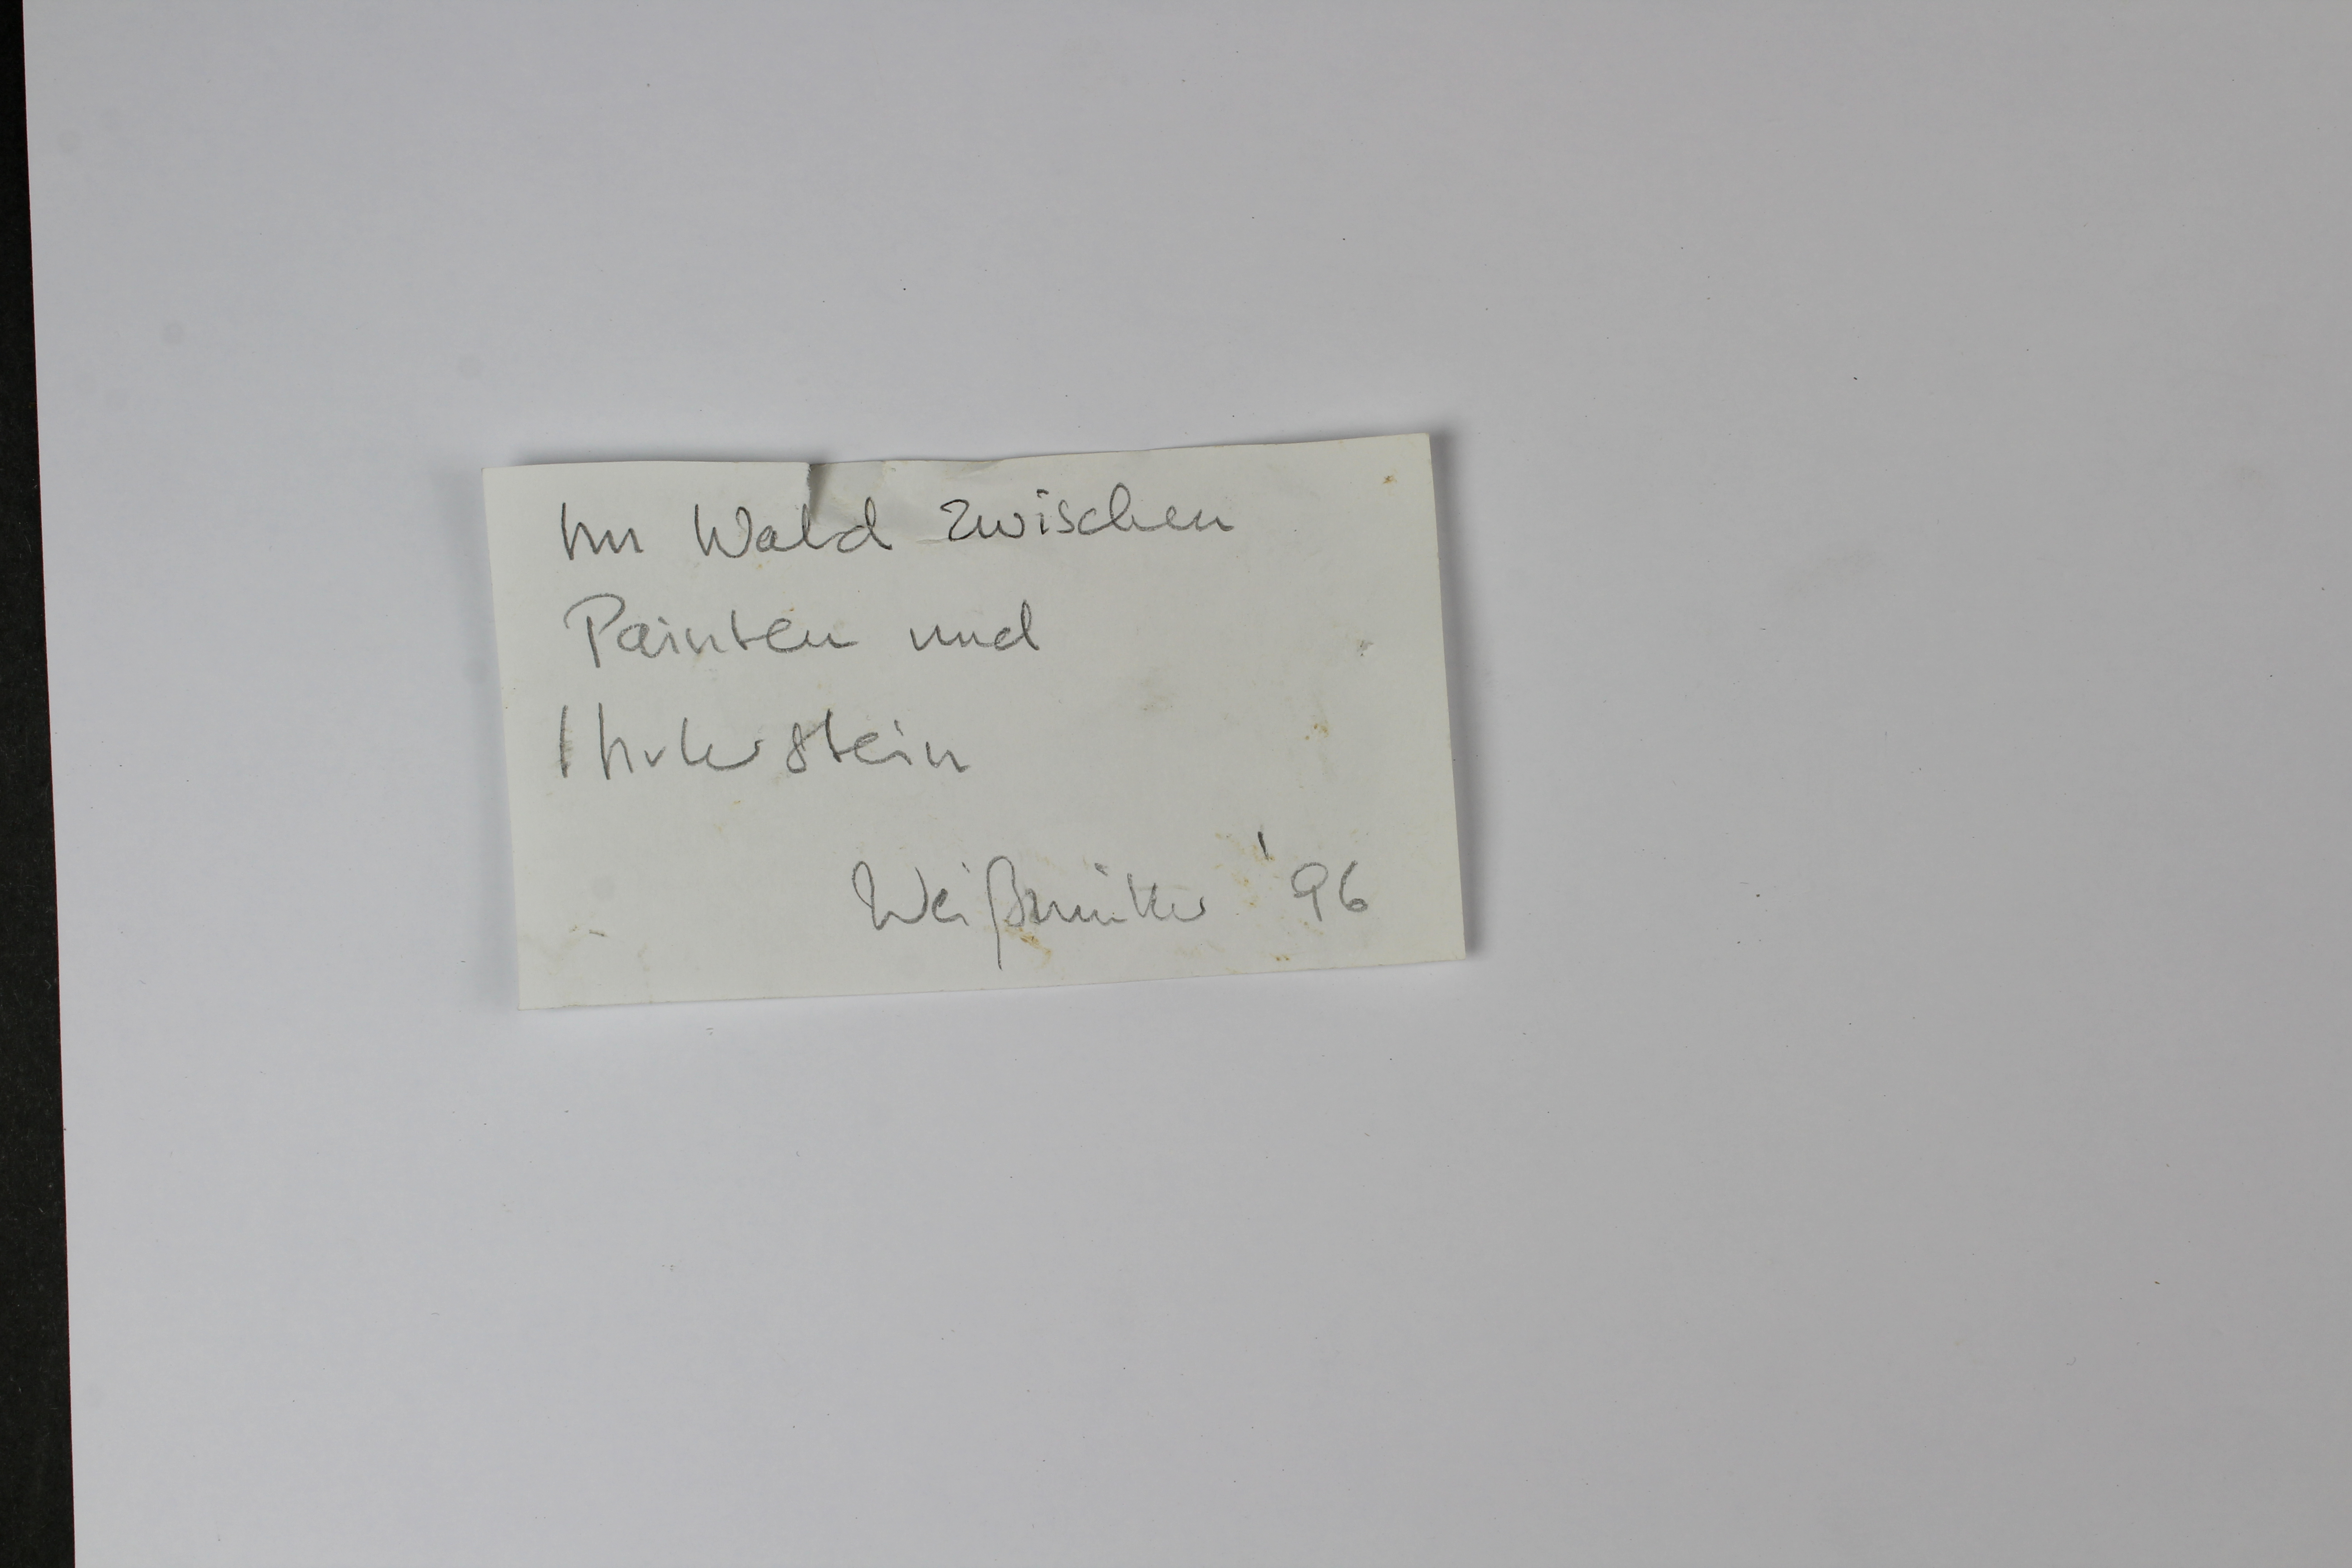 Im Wald zwischen
Painten und
Ihrlerstein
Weißmüller '96